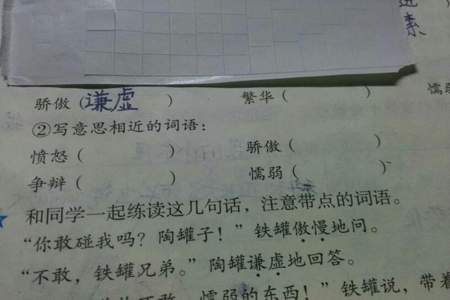 素
骄傲（谦虚） 繁华（ ） 懦
②写意思相近的词语：
愤怒（ ） 骄傲（ ）
争辩（ ） 懦弱（ ）
和同学一起练读这几句话，注意带点的词语。
“你敢碰我吗？陶罐子！”铁罐傲慢地问。
“不敢，铁罐兄弟。”陶罐谦虚地回答。
懦弱的东西！”铁罐说，带着